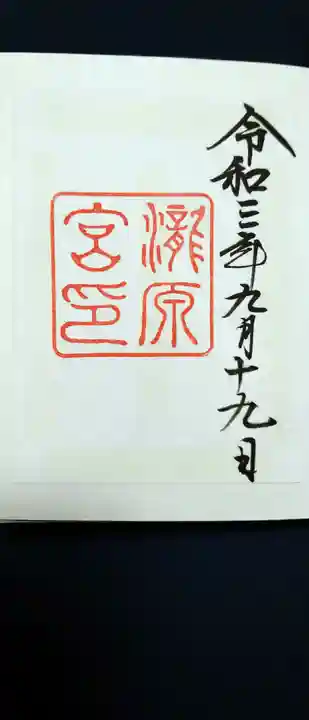 令和三年九月十九日
瀧原
宮印